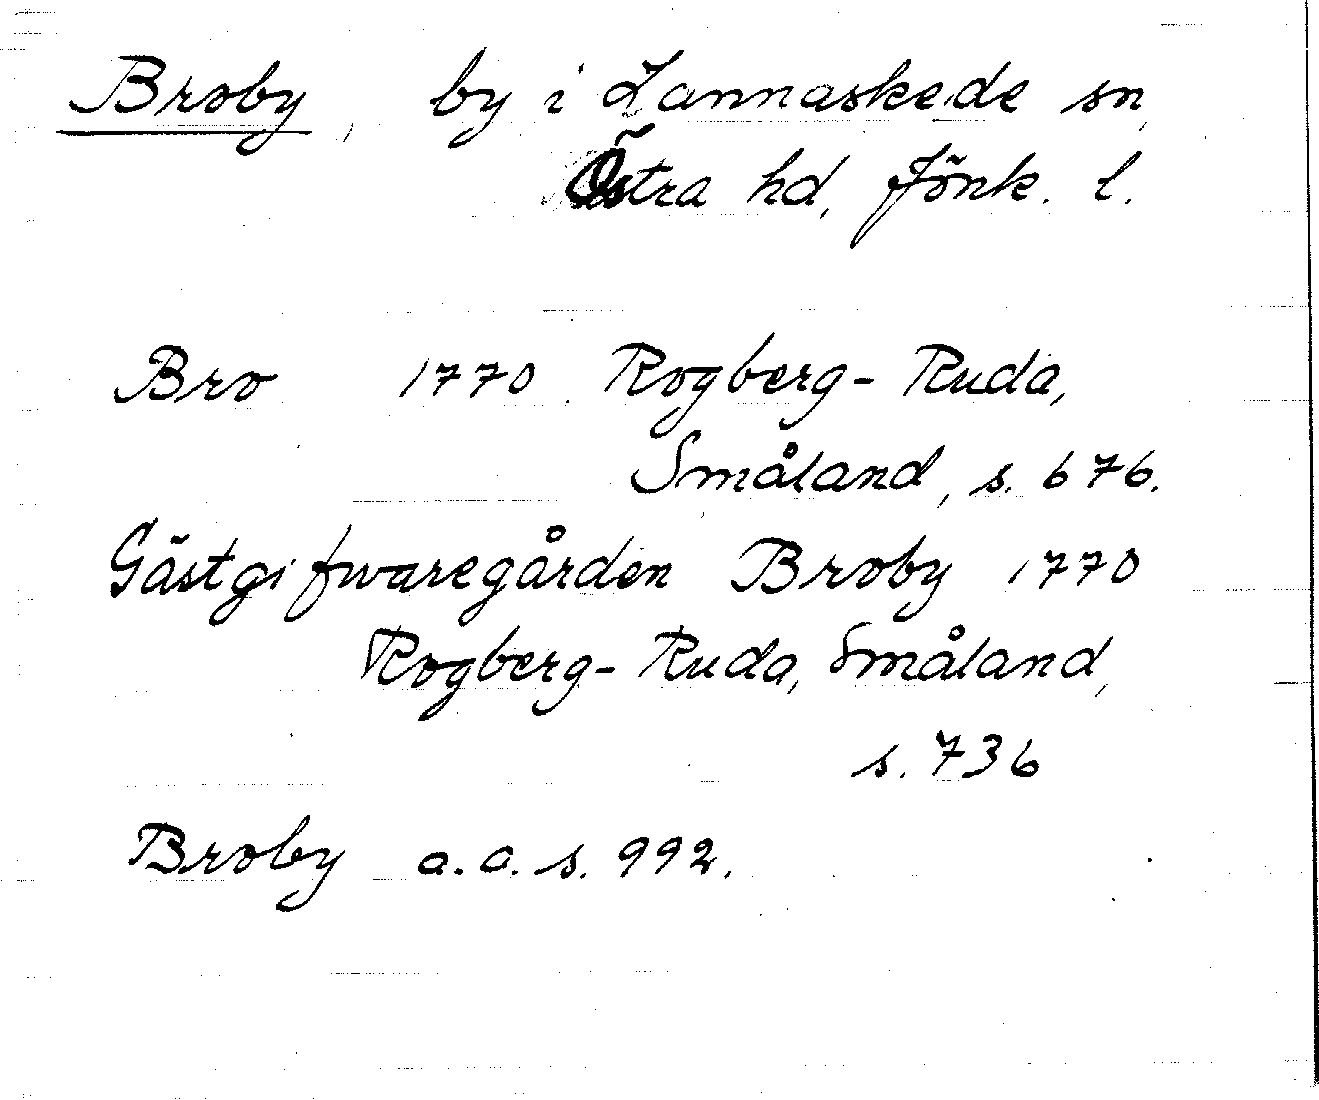 Broby, by i Lannaskede sn,
Östra hd, Jönk. l.
Bro 1770. Rogberg-Ruda,
Småland, s. 676.
Gästgifwaregården Broby 1770
Rogberg-Ruda, Småland,
s. 736
Broby a.a. s. 992.